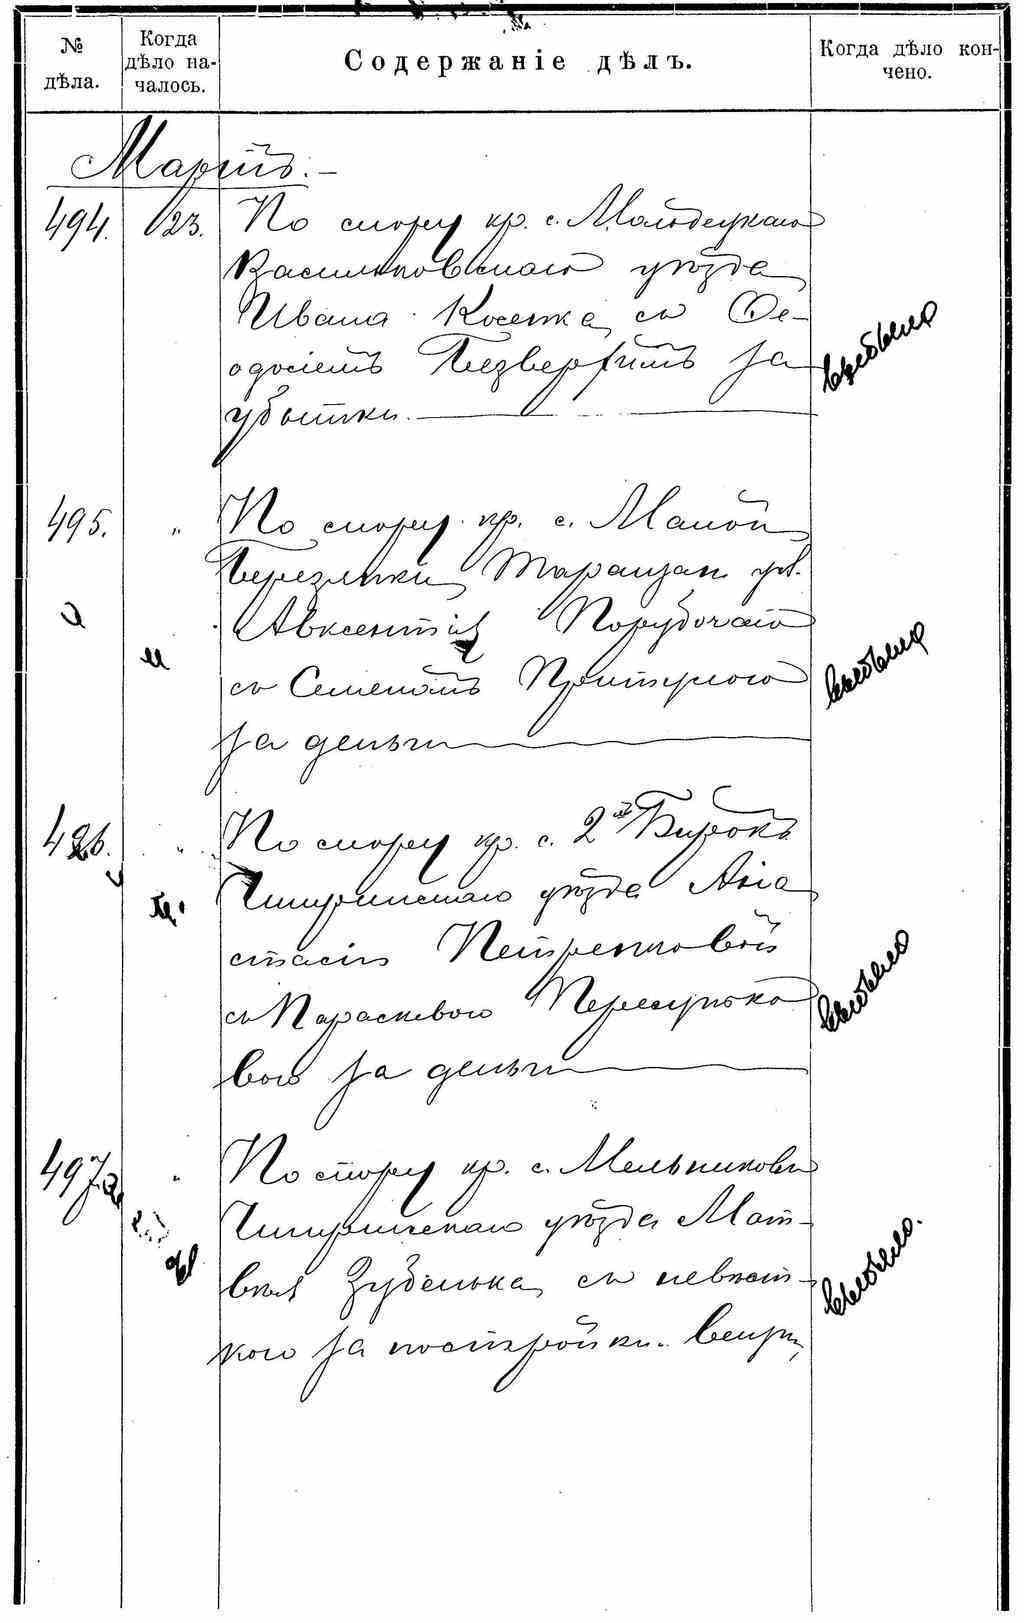 № дѣла.
Когда дѣло на-чалось.
Содержаніе дѣлъ.
Когда дѣло кон-чено.
Мартъ.
494. 23. По спору кр. с. Молодецкаго
Васильковскаго уѣзда
Ивана Косенка съ Ѳе-
одосіемъ Безверхимъ за
убытки.
выбыло
495. " По спору кр. с. Малой
Березянки Таращан. уѣз.
Авксентія Порубочаго
съ Семеномъ
за деньги
выбыло
496. " По спору кр. с. 2й Бирокъ
Чигиринскаго уѣзда Ана
стасіи Петренковой
съ Параскевою Пересунько
вою за деньги
выбыло
497. " По спору кр. с. Мельниковки
Чигиринскаго уѣзда Мат-
вѣя Зубенька съ невѣст-
кою за постройки
выбыло.